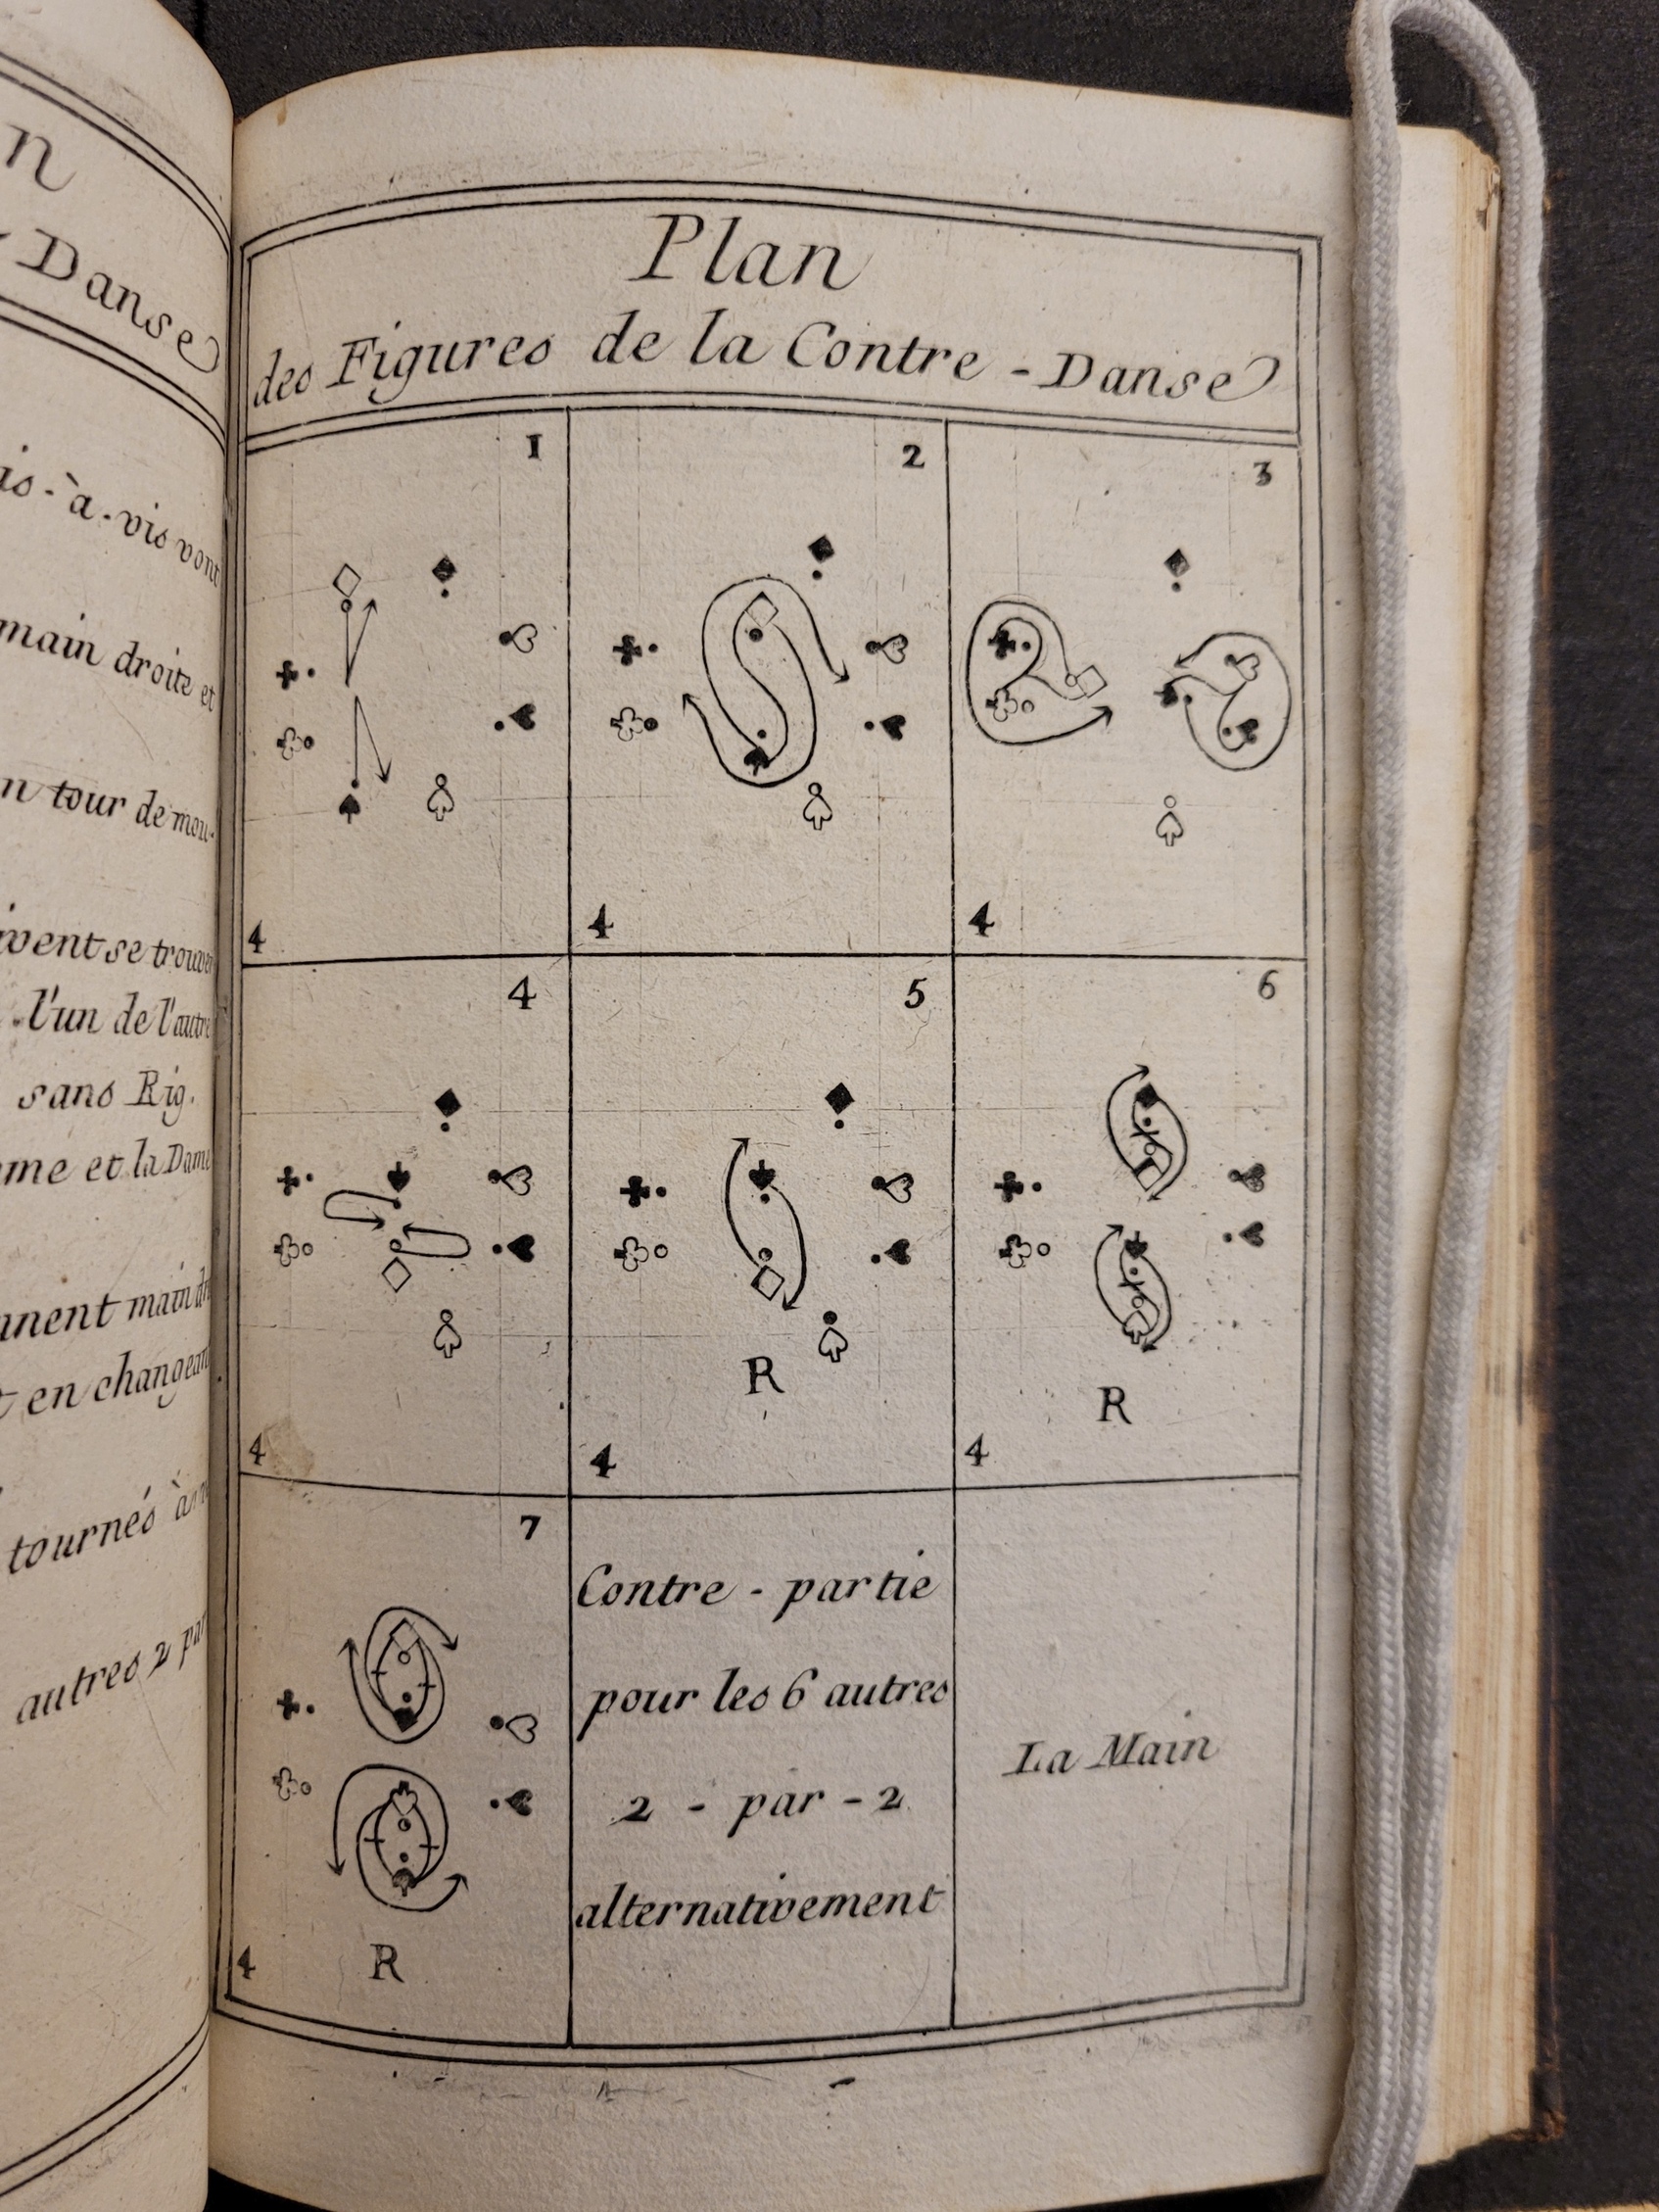 n
Danse
is-à-vis vont
main droite et
n tour de mou-
ivent se trouver
l'un de l'autre
sans Rig.
me et la Dame
nnent main dr
t en changean
tournés à
autres 2 par
Plan
des Figures de la Contre-Danse
1
2
3
4
4
4
4
5
6
R
R
4
4
4
7
Contre-partie
pour les 6 autres
2-par-2
alternativement
La Main
4
R